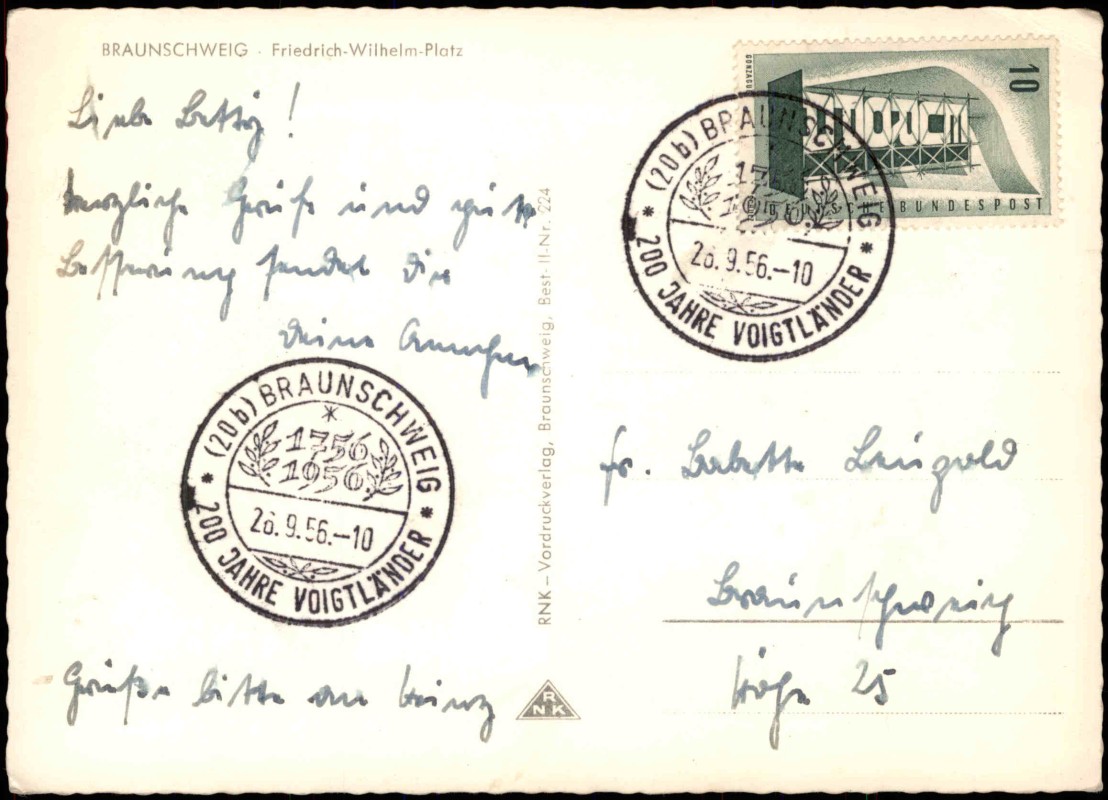 BRAUNSCHWEIG · Friedrich-Wilhelm-Platz
Liebe Betty!
herzliche Grüße und gute
Besserung sendet Dir
Deine Annchen
(20b) BRAUNSCHWEIG
1756
1956
26.9.56.-10
* 200 JAHRE VOIGTLÄNDER *
Grüße bitte an Heinz
RNK – Vordruckverlag, Braunschweig, Best-II-Nr. 224
RNK
10
EUROPA
DEUTSCHE BUNDESPOST
(20b) BRAUNSCHWEIG
26.9.56.-10
* 200 JAHRE VOIGTLÄNDER *
Fr. Babette Leupold
Braunschweig
Höhe 25